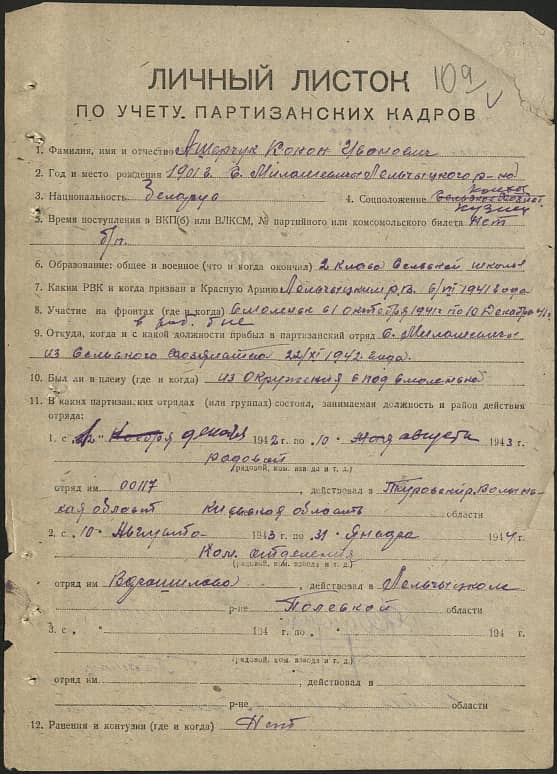 109
ЛИЧНЫЙ ЛИСТОК
ПО УЧЕТУ ПАРТИЗАНСКИХ КАДРОВ
1. Фамилия, имя и отчество Ашерчук Конон Иванович
2. Год и место рождения 1901 г. с. Милашевичи Лельчыцкого р-на
3. Национальность Беларус 4. Соцположение
кузнец
5. Время поступления в ВКП(б) или ВЛКСМ, № партийного или комсомольского билета Нет
б/п.
6. Образование: общее и военное (что и когда окончил) 2 класа сельской школы
7. Каким РВК и когда призван в Красную Армию Лельчыцким р.в. 6/VII 1941 года
8. Участие на фронтах (где и когда) Смоленск с 1 октября 1941 г по 10 Декабря 41 г.
9. Откуда, когда и с какой должности прибыл в партизанский отряд с. Милашевичи
из сельского 22/XI 1942 года.
10. Был ли в плену (где и когда) из окружения под Смоленском
11. В каких партизанских отрядах (или группах) состоял, занимаемая должность и район действия
отряда:
1. с „12" Ноября декабря 1942 г. по „10 Мая августа 1943 г.
рядовой
(рядовой, ком. взвода и т. д.)
отряд им 00117 , действовал в
Киевская область области
2. с „10 Августа 1943 г. по „31 Января 1944 г.
Ком. отделения
(рядовой, ком. взвода и т. д.)
отряд им Ворошилова , действовал в Лельчыцком
р-не Полеской области
3. с „ " 194 г. по „ " 194 г.
(рядовой, ком. взвода и т. д.)
отряд им. , действовал в
р-не области
12. Ранения и контузии (где и когда) Нет